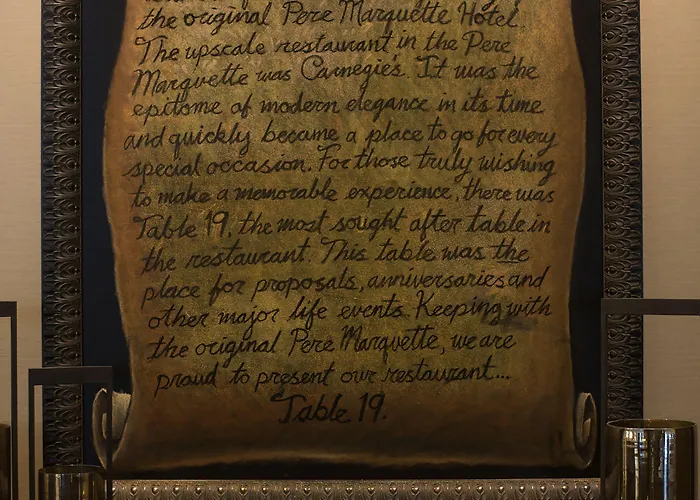 the original Pere Marquette Hotel
The upscale restaurant in the Pere
Marquette was Carnegie's. It was the
epitome of modern elegance in its time
and quickly became a place to go for every
special occasion. For those truly wishing
to make a memorable experience, there was
Table 19, the most sought after table in
the restaurant. This table was the
place for proposals, anniversaries and
other major life events. Keeping with
the original Pere Marquette, we are
proud to present our restaurant...
Table 19.